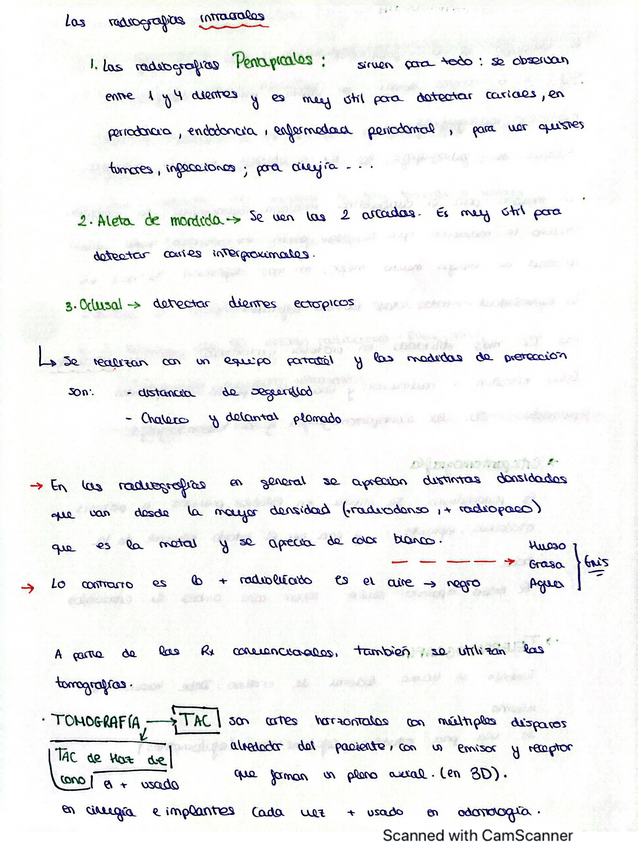 Las radiografías intraorales
1. Las radiografías Periapicales: sirven para todo: se observan
entre 1 y 4 dientes y es muy útil para detectar caries, en
periodoncia, endodoncia, enfermedad periodontal, para ver quistes
tumores, infecciones; para cirujía ...
2. Aleta de mordida → Se ven las 2 arcadas. Es muy útil para
detectar caries interproximales.
3. Oclusal → detectar dientes ectopicos
↳ Se realizan con un equipo portatil y las medidas de protección
son: - distancia de seguridad
- Chaleco y delantal plomado
→ En las radiografías en general se aprecian distintas densidades
que van desde la mayor densidad (+radiodenso, + radiopaco)
que es la metal y se aprecia de color blanco.
- - - - → Hueso
Grasa
Agua } Gris
→ Lo contrario es lo + radiolúcido es el aire → negro
A parte de las Rx convencionales, también, se utilizan las
tomografías.
· TOMOGRAFÍA → TAC son cortes horizontales con múltiples disparos
alrededor del paciente, con un emisor y receptor
que forman un plano axial. (en 3D).
TAC de Haz de
cono el + usado
en cirugía e implantes cada vez + usado en odontología.
Scanned with CamScanner